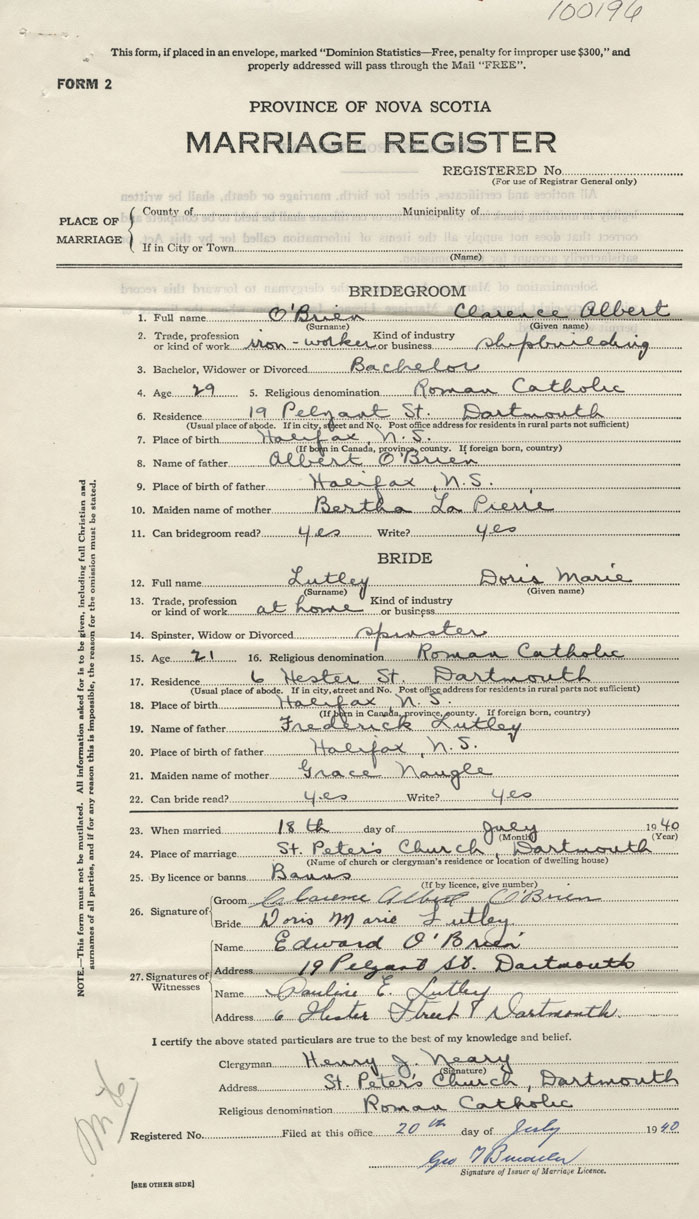 100196
This form, if placed in an envelope, marked "Dominion Statistics—Free, penalty for improper use $300," and
properly addressed will pass through the Mail "FREE".
FORM 2
PROVINCE OF NOVA SCOTIA
MARRIAGE REGISTER
REGISTERED No.
(For use of Registrar General only)
PLACE OF MARRIAGE
County of Municipality of
If in City or Town
(Name)
BRIDEGROOM
1. Full name O'Brien Clarence Albert
(Surname) (Given name)
2. Trade, profession or kind of work iron-worker Kind of industry or business shipbuilding
3. Bachelor, Widower or Divorced Bachelor
4. Age 29 5. Religious denomination Roman Catholic
6. Residence 19 Pelzant St. Dartmouth
(Usual place of abode. If in city, street and No. Post office address for residents in rural parts not sufficient)
7. Place of birth Halifax, N.S.
(If born in Canada, province, county. If foreign born, country)
8. Name of father Albert O'Brien
9. Place of birth of father Halifax, N.S.
10. Maiden name of mother Bertha La Pierre
11. Can bridegroom read? yes Write? yes
BRIDE
12. Full name Lutley Doris Marie
(Surname) (Given name)
13. Trade, profession or kind of work at home Kind of industry or business
14. Spinster, Widow or Divorced spinster
15. Age 21 16. Religious denomination Roman Catholic
17. Residence 6 Hester St. Dartmouth
(Usual place of abode. If in city, street and No. Post office address for residents in rural parts not sufficient)
18. Place of birth Halifax, N.S.
(If born in Canada, province, county. If foreign born, country)
19. Name of father Frederick Lutley
20. Place of birth of father Halifax, N.S.
21. Maiden name of mother Grace Naugle
22. Can bride read? yes Write? yes
23. When married 18th day of July 1940
(Month) (Year)
24. Place of marriage St. Peter's Church, Dartmouth
(Name of church or clergyman's residence or location of dwelling house)
25. By licence or banns Banns
(If by licence, give number)
26. Signature of
Groom Clarence Albert O'Brien
Bride Doris Marie Lutley
27. Signatures of Witnesses
Name Edward O'Brien
Address 19 Pelzant St. Dartmouth
Name Pauline E. Lutley
Address 6 Hester Street Dartmouth.
I certify the above stated particulars are true to the best of my knowledge and belief.
Clergyman Henry J. Neary
(Signature)
Address St. Peter's Church, Dartmouth
Religious denomination Roman Catholic
Registered No. Filed at this office 20th day of July 1940
Geo
Signature of Issuer of Marriage Licence.
[SEE OTHER SIDE]
NOTE.—This form must not be mutilated. All information asked for is to be given, including full Christian and
surnames of all parties, and if for any reason this is impossible, the reason for the omission must be stated.